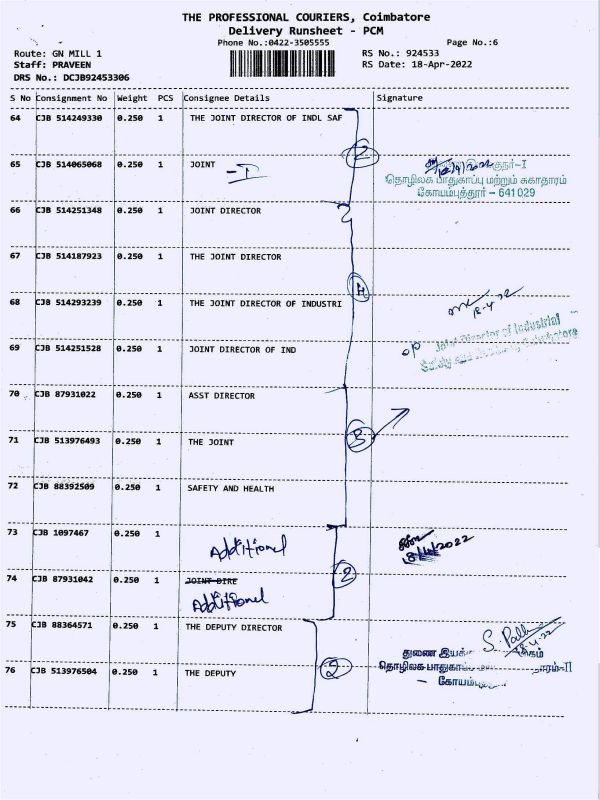 THE PROFESSIONAL COURIERS, Coimbatore
Delivery Runsheet - PCM
Phone No.:0422-3505555 Page No.:6
Route: GN MILL 1 RS No.: 924533
Staff: PRAVEEN RS Date: 18-Apr-2022
DRS No.: DCJB92453306
S No Consignment No Weight PCS Consignee Details Signature
64 CJB 514249330 0.250 1 THE JOINT DIRECTOR OF INDL SAF
2
65 CJB 514065068 0.250 1 JOINT - I
தொழிலக பாதுகாப்பு மற்றும் சுகாதாரம்
கோயம்புத்தூர் – 641 029
66 CJB 514251348 0.250 1 JOINT DIRECTOR
67 CJB 514187923 0.250 1 THE JOINT DIRECTOR
4
68 CJB 514293239 0.250 1 THE JOINT DIRECTOR OF INDUSTRI
18-4-22
Joint Director of Industrial
69 CJB 514251528 0.250 1 JOINT DIRECTOR OF IND
Safety and
70 CJB 87931022 0.250 1 ASST DIRECTOR
3
71 CJB 513976493 0.250 1 THE JOINT
72 CJB 88392509 0.250 1 SAFETY AND HEALTH
73 CJB 1097467 0.250 1
Additional 18/4/2022
74 CJB 87931042 0.250 1 JOINT DIRE
2
Additional
75 CJB 88364571 0.250 1 THE DEPUTY DIRECTOR
18-4-22
துணை
2
தொழிலக
76 CJB 513976504 0.250 1 THE DEPUTY